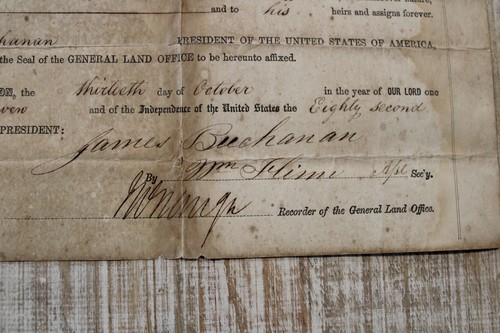 and to his heirs and assigns forever.
hanan PRESIDENT OF THE UNITED STATES OF AMERICA,
the Seal of the GENERAL LAND OFFICE to be hereunto affixed.
the thirtieth day of October in the year of OUR LORD one
and of the Independence of the United States the Eighty second
PRESIDENT: James Buchanan
By Wm Flinn Asst Sec'y.
Recorder of the General Land Office.